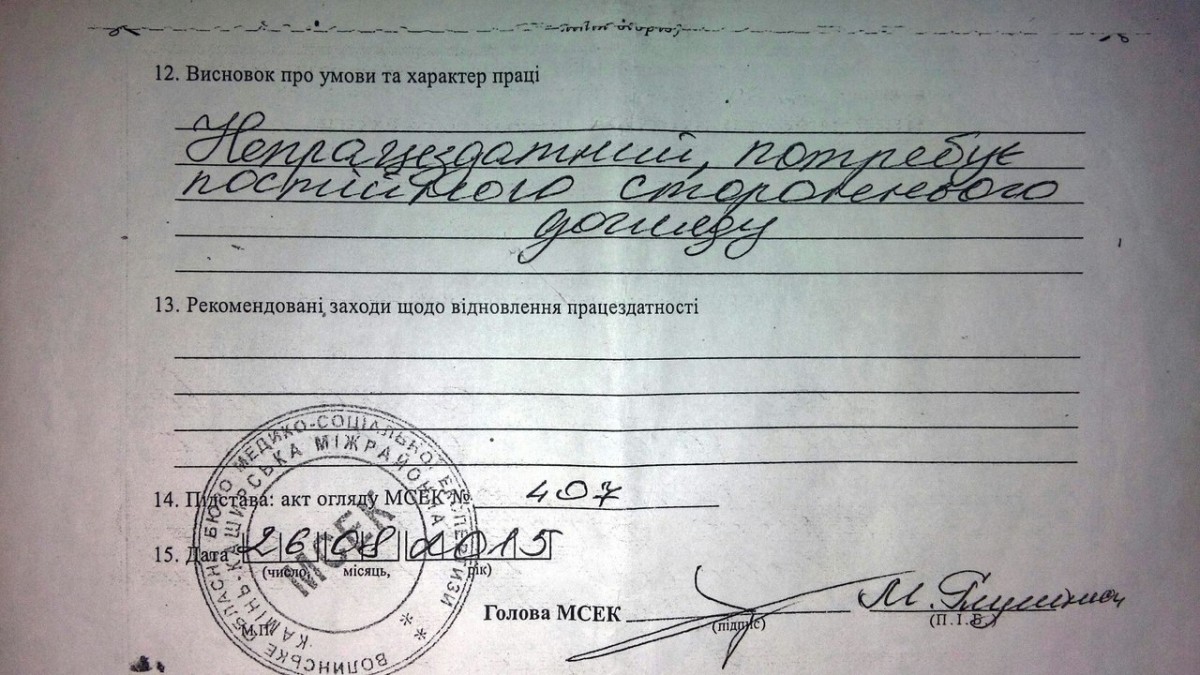 12. Висновок про умови та характер праці
Непрацездатний, потребує
постійного стороннього
догляду
13. Рекомендовані заходи щодо відновлення працездатності
14. Підстава: акт огляду МСЕК № 407
15. Дата 26 08 2015
(число, місяць, рік)
Голова МСЕК
(підпис)
М.
(П.І.Б.)
М.П.
ВОЛИНСЬКЕ ОБЛАСНЕ БЮРО МЕДИКО-СОЦІАЛЬНОЇ ЕКСПЕРТИЗИ
КАМІНЬ-КАШИРСЬКА МІЖРАЙОННА
МСЕК